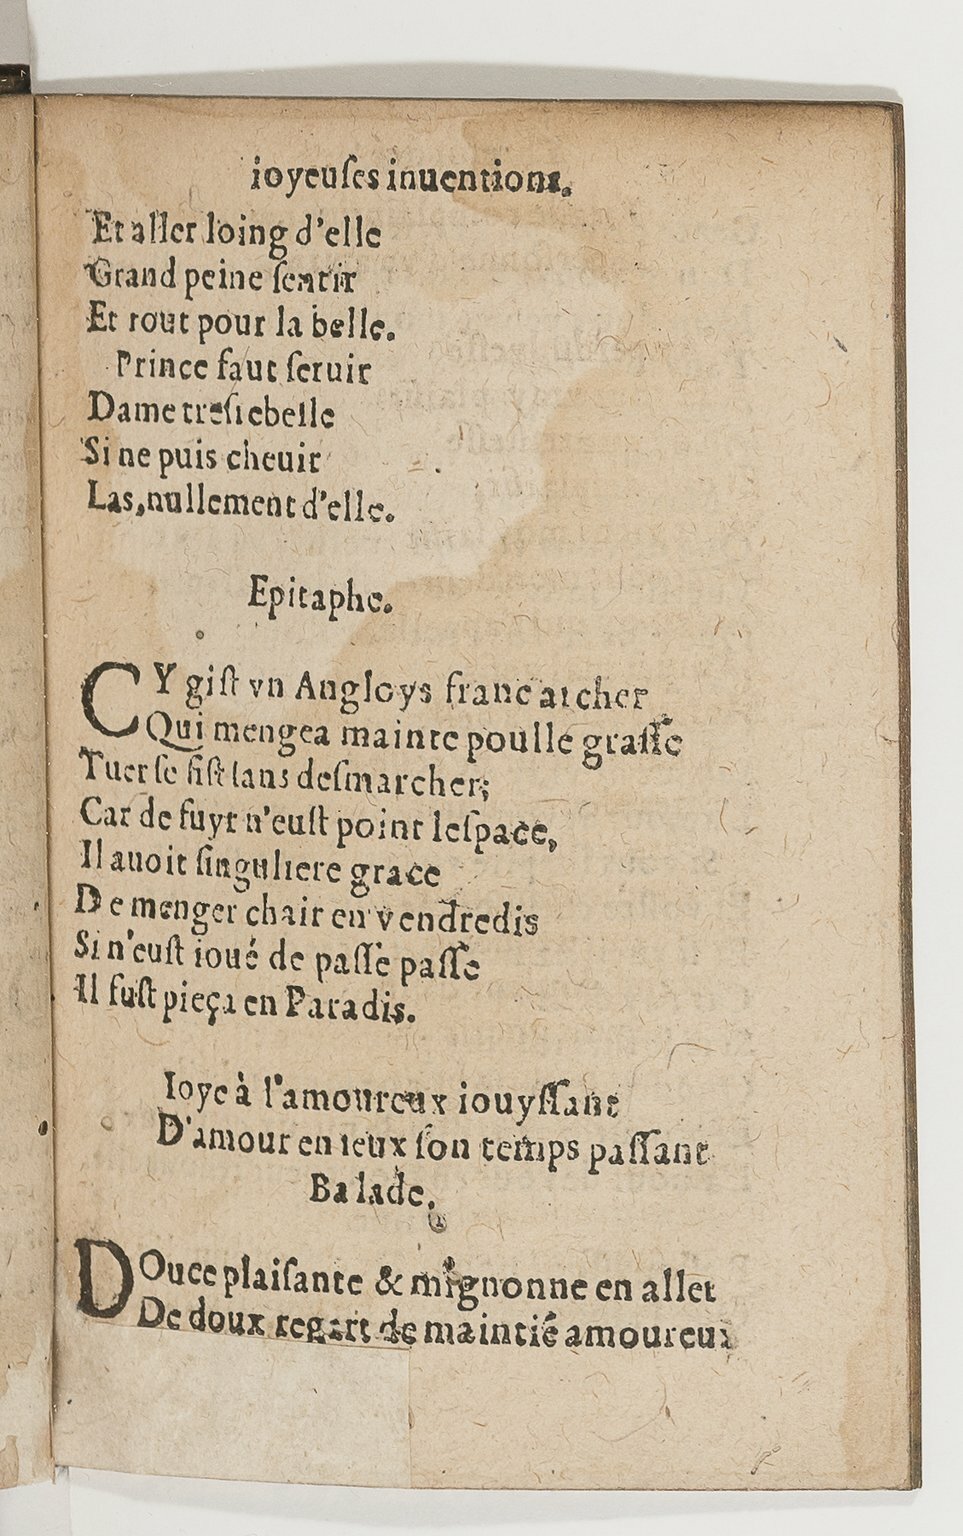 ioyeuſes inuentions.
Et aller loing d'elle
Grand peine ſentir
Et tout pour la belle.
Prince faut ſeruir
Dame treſrebelle
Si ne puis cheuir
Las, nullement d'elle.
Epitaphe.
CY giſt vn Angloys franc archer
Qui mengea mainte poulle graſſe
Tuer ſe fiſt ſans deſmarcher;
Car de fuyr n'euſt point leſpace,
Il auoit ſinguliere grace
De menger chair en vendredis
Si n'euſt ioué de paſſe paſſe
Il fuſt pieça en Paradis.
Ioye à l'amoureux iouyſſant
D'amour en ieux ſon temps paſſant
Balade.
DOuce plaiſante & mignonne en aller
De doux regart de maintié amoureux